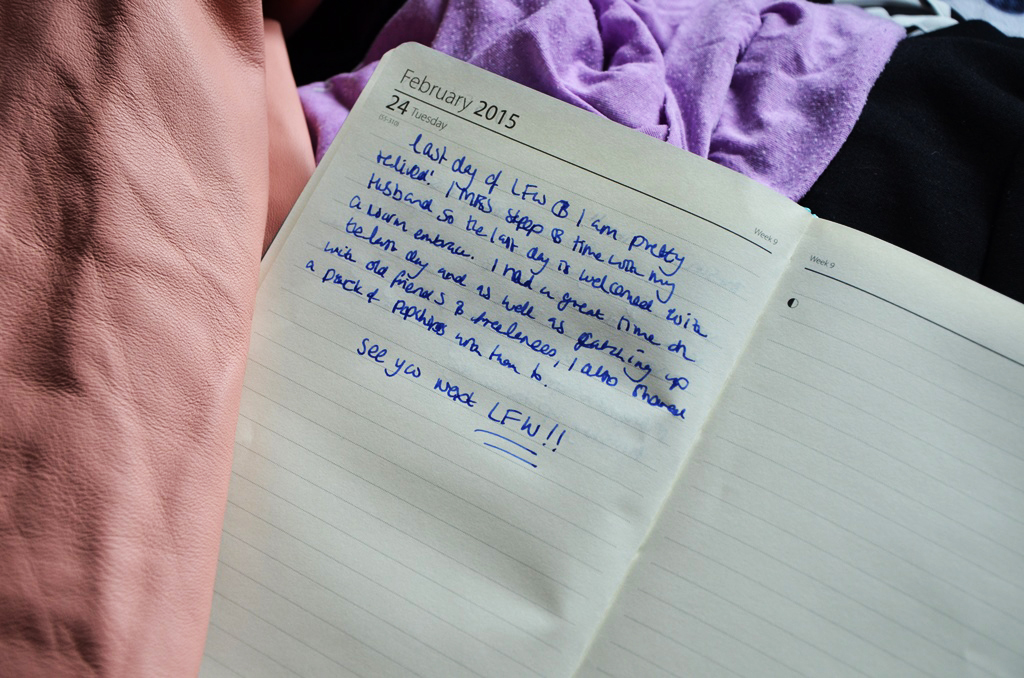 February 2015
24 Tuesday
(55-310)
last day of LFW & I am pretty
relived! I miss sleep & time with my
Husband so the last day is welcomed with
a warm embrace. I had a great time on
the last day and as well as catching up
with old friends & freelances, I also shared
a pack of Popchips with them to.
see you next LFW!!
Week 9
Week 9